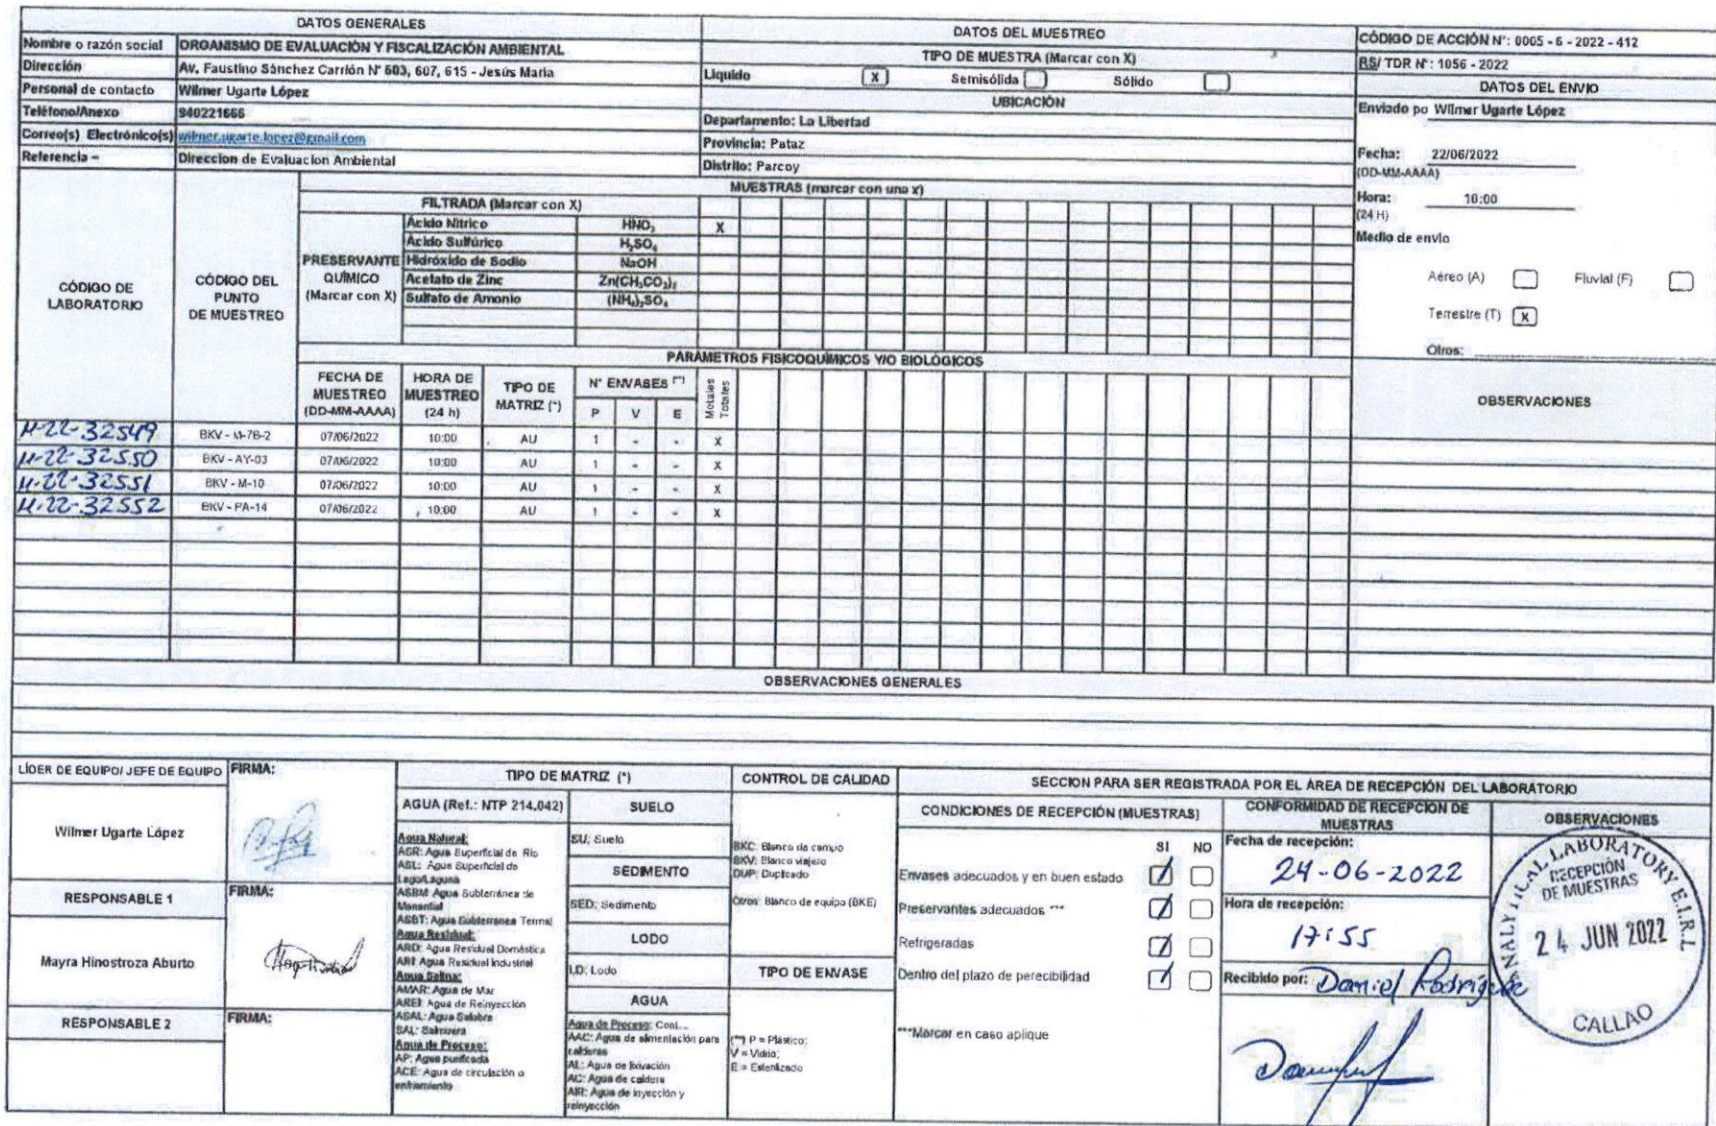 DATOS GENERALES
Nombre o razón social ORGANISMO DE EVALUACIÓN Y FISCALIZACIÓN AMBIENTAL
Dirección Av, Faustino Sánchez Carrión N° 603, 607, 615 - Jesús Maria
Personal de contacto Wilmer Ugarte López
Teléfono/Anexo 940221666
Correo(s) Electrónico(s) wilmer.ugarte.lopez@gmail.com
Referencia – Direccion de Evaluacion Ambiental
DATOS DEL MUESTREO
TIPO DE MUESTRA (Marcar con X)
Líquido X Semisólida Sólido
UBICACIÓN
Departamento: La Libertad
Provincia: Pataz
Distrito: Parcoy
CÓDIGO DE ACCIÓN N°: 0005 - 6 - 2022 - 412
RS/ TDR N°: 1056 - 2022
DATOS DEL ENVIO
Enviado po Wilmer Ugarte López
Fecha: 22/06/2022
(DD-MM-AAAA)
Hora: 10:00
(24 H)
Medio de envio
Aéreo (A) Fluvial (F)
Terrestre (T) X
Otros:
OBSERVACIONES
MUESTRAS (marcar con una x)
FILTRADA (Marcar con X)
PRESERVANTE QUÍMICO (Marcar con X)
Ácido Nítrico HNO₃ X
Ácido Sulfúrico H₂SO₄
Hidróxido de Sodio NaOH
Acetato de Zinc Zn(CH₃CO₂)₂
Sulfato de Amonio (NH₄)₂SO₄
PARÁMETROS FISICOQUÍMICOS Y/O BIOLÓGICOS
CÓDIGO DE LABORATORIO
CÓDIGO DEL PUNTO DE MUESTREO
FECHA DE MUESTREO (DD-MM-AAAA)
HORA DE MUESTREO (24 h)
TIPO DE MATRIZ (*)
N° ENVASES (**)
P V E
Metales Totales
M-22-32549 BKV - M-7B-2 07/06/2022 10:00 AU 1 - - X
M-22-32550 BKV - AY-03 07/06/2022 10:00 AU 1 - - X
M-22-32551 BKV - M-10 07/06/2022 10:00 AU 1 - - X
M-22-32552 BKV - PA-14 07/06/2022 10:00 AU 1 - - X
OBSERVACIONES GENERALES
LÍDER DE EQUIPO/ JEFE DE EQUIPO FIRMA:
Wilmer Ugarte López
RESPONSABLE 1 FIRMA:
Mayra Hinostroza Aburto
RESPONSABLE 2 FIRMA:
TIPO DE MATRIZ (*)
AGUA (Ref.: NTP 214.042)
Agua Natural:
ASR: Agua Superficial de Rio
ASL: Agua Superficial de
Lago/Laguna
ASBM: Agua Subterránea de
Manantial
ASBT: Agua Subterranea Termal
Agua Residual:
ARD: Agua Residual Doméstica
ARI: Agua Residual Industrial
Agua Salina:
AMAR: Agua de Mar
AREI: Agua de Reinyección
ASAL: Agua Salobre
SAL: Salmuera
Agua de Proceso:
AP: Agua purificada
ACE: Agua de circulación o
enfriamiento
SUELO
SU: Suelo
SEDIMENTO
SED: Sedimento
LODO
LD: Lodo
AGUA
Agua de Proceso: Cont...
AAC: Agua de alimentación para
calderas
AL: Agua de lixivación
AC: Agua de caldera
AIR: Agua de inyección y
reinyección
CONTROL DE CALIDAD
BKC: Blanco de campo
BKV: Blanco viajero
DUP: Duplicado
Otros: Blanco de equipo (BKE)
TIPO DE ENVASE
(**) P = Plástico;
V = Vidrio;
E = Esterilizado
SECCION PARA SER REGISTRADA POR EL ÁREA DE RECEPCIÓN DEL LABORATORIO
CONDICIONES DE RECEPCIÓN (MUESTRAS)
SI NO
Envases adecuados y en buen estado
Preservantes adecuados ***
Refrigeradas
Dentro del plazo de perecibilidad
***Marcar en caso aplique
CONFORMIDAD DE RECEPCION DE MUESTRAS
Fecha de recepción:
24-06-2022
Hora de recepción:
17:55
Recibido por: Daniel Rodríguez
OBSERVACIONES
ANALYTICAL LABORATORY E.I.R.L
RECEPCIÓN
DE MUESTRAS
24 JUN 2022
CALLAO